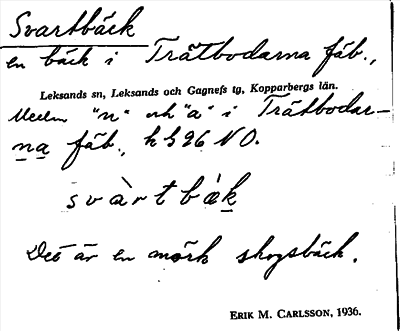 Svartbäck
en bäck i Trätbodarna fäb.,
Leksands sn, Leksands och Gagnefs tg, Kopparbergs län.
Mellm "n" och "a" i Trätbodar-
na fäb., h 396 NO.
svàrt bäk
Det är en mörk skogsbäck.
ERIK M. CARLSSON, 1936.